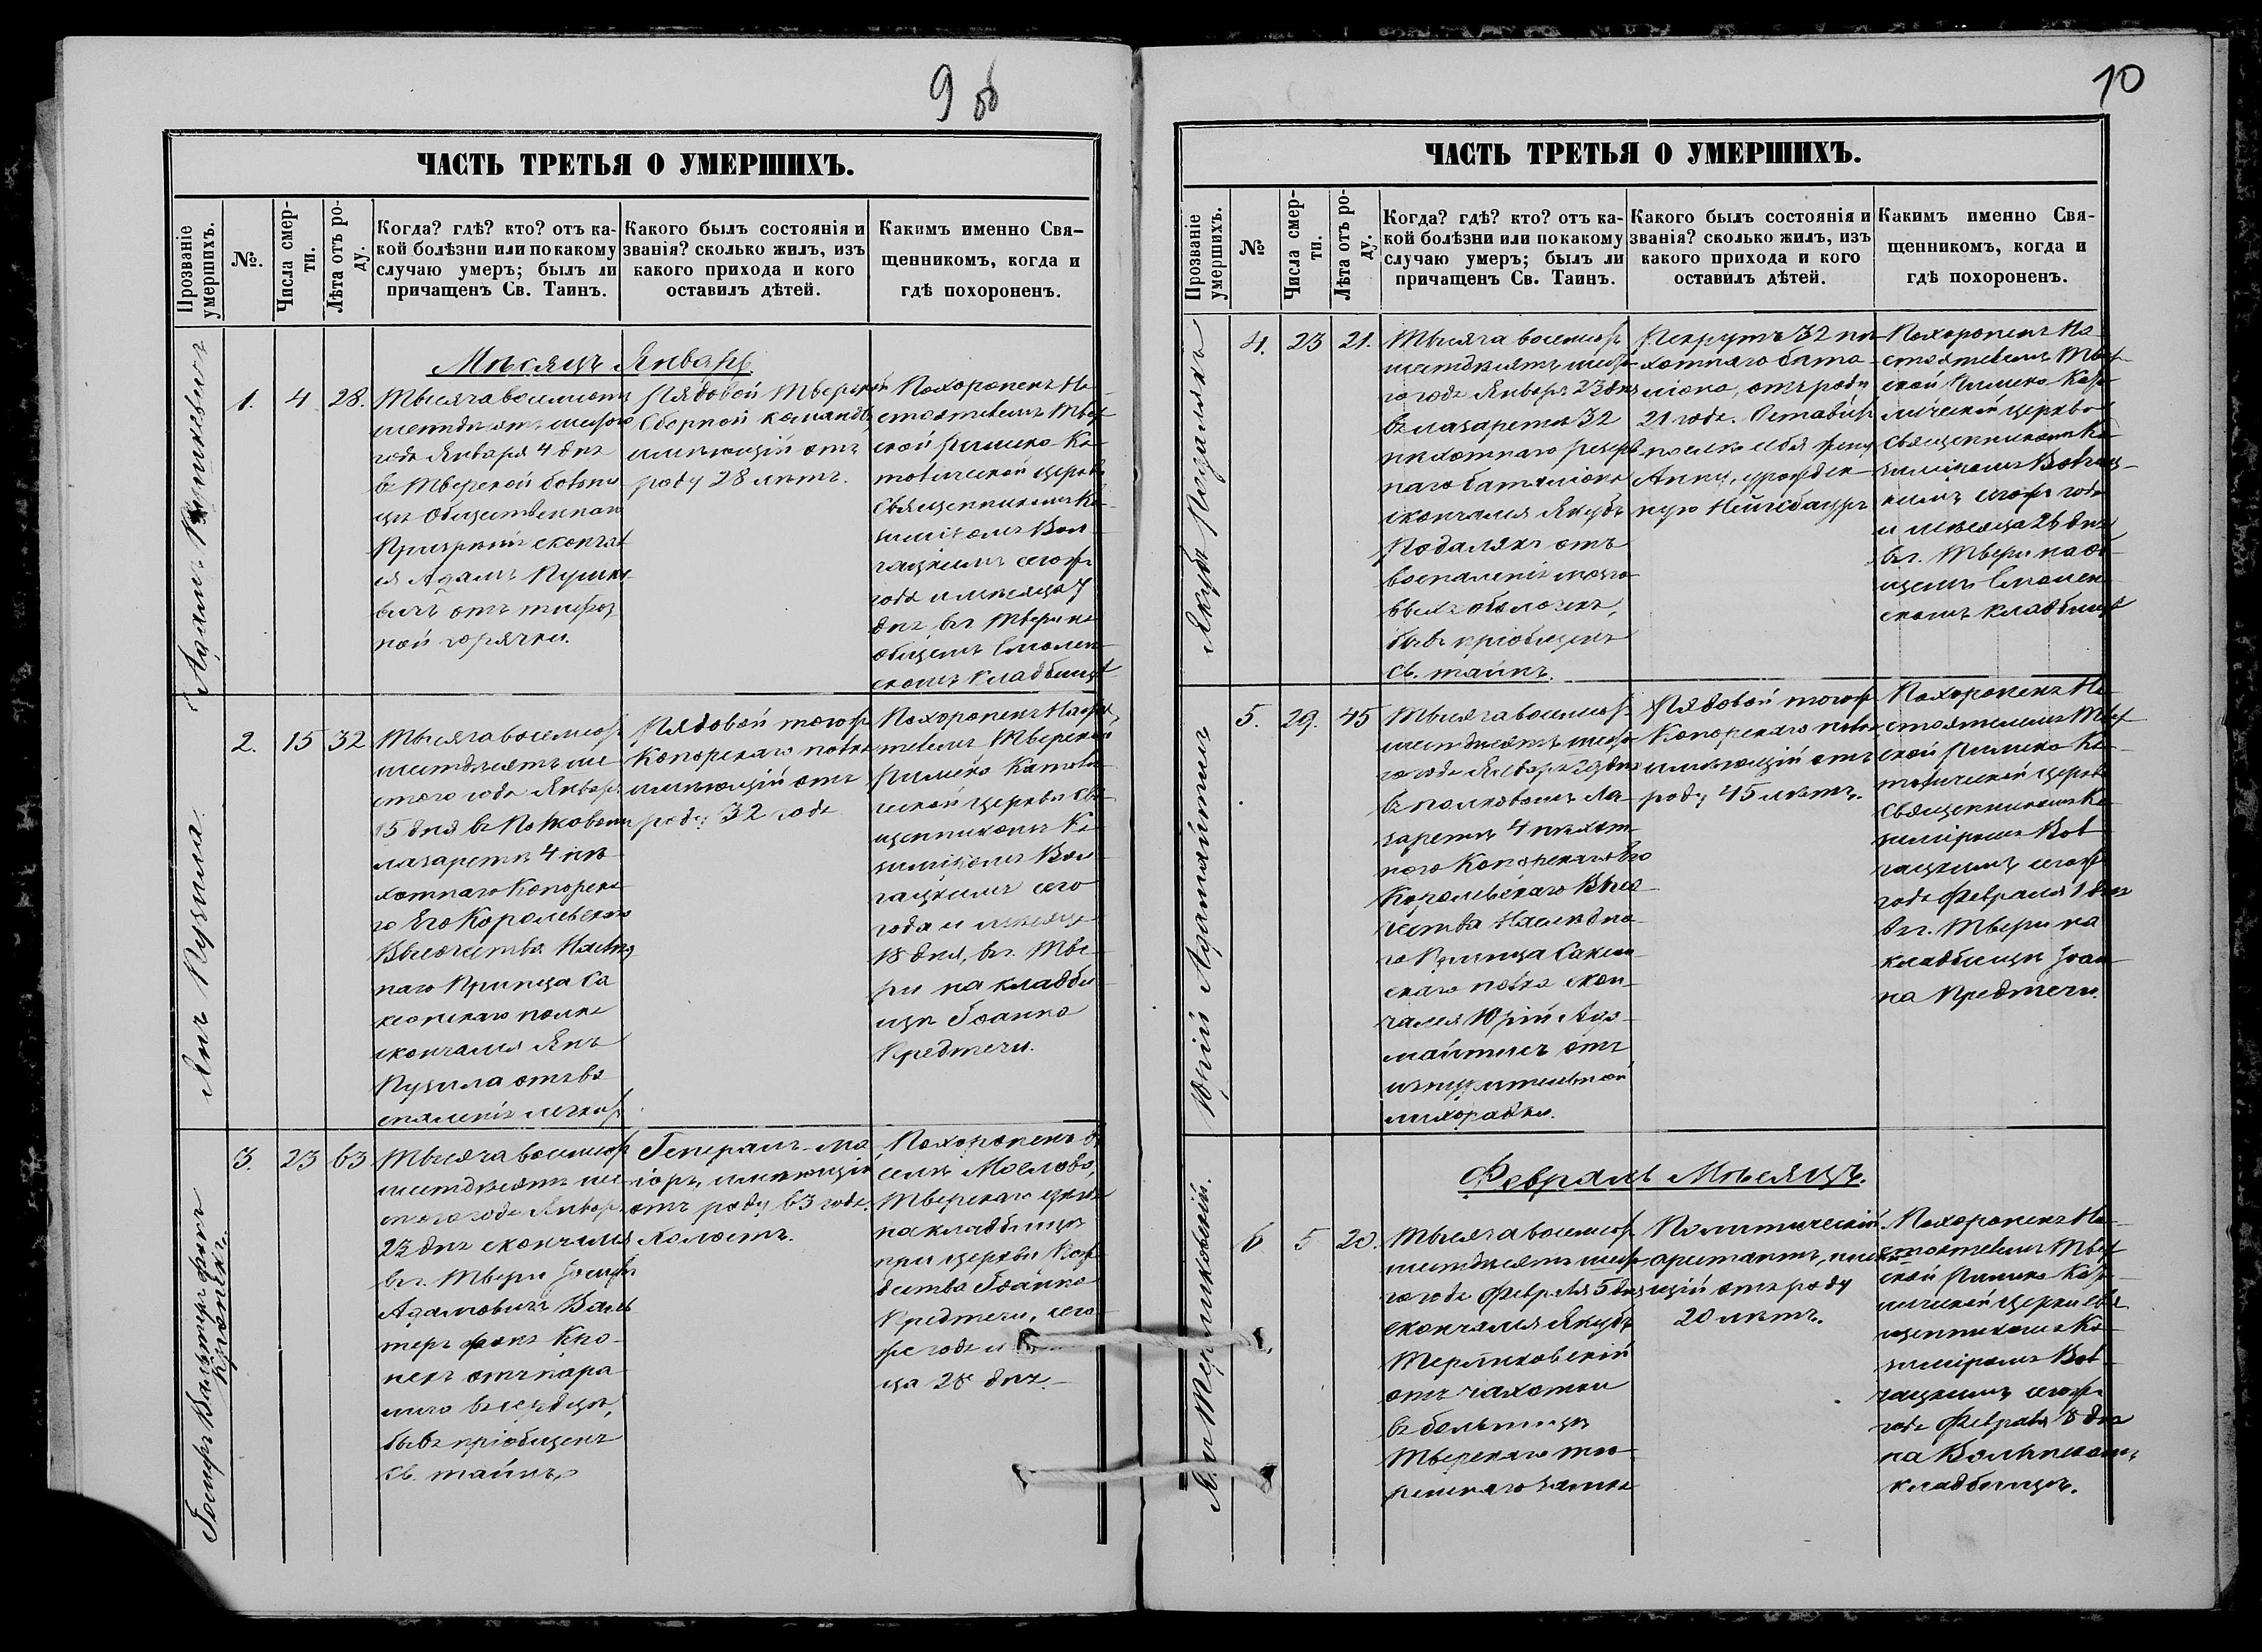 9 об
ЧАСТЬ ТРЕТЬЯ О УМЕРШИХЪ.
Прозваніе умершихъ.
№.
Числа смерти.
Лѣта отъ роду.
Когда? гдѣ? кто? отъ ка-
кой болѣзни или по какому
случаю умеръ; былъ ли
причащенъ Св. Таинъ.
Какого былъ состоянія и
званія? сколько жилъ, изъ
какого прихода и кого
оставилъ дѣтей.
Какимъ именно Свя-
щенникомъ, когда и
гдѣ похороненъ.
Мѣсяцъ Январь
Адамъ
1.
4
28.
года Января 4 дня
въ Тверской больни
цѣ Общественнаго
Призрѣнія сконча
ся Адамъ
отъ тифоз
ной горячки.
Рядовой Тверской
Сборной команды
имѣющій отъ
роду 28 лѣтъ.
Похороненъ На
стоятелемъ Твер
ской Римско Ка
толической церкви
Священникомъ Ка
зиміромъ Вол
чацкимъ сегожъ
года и мѣсяца 7
дня въ г. Твери на
общемъ Смолен
скомъ кладбищѣ
Янъ Пузина.
2.
15
32
Тысяча восемсотъ
шестдесятъ ше
стого года Января
15 дня въ Полковомъ
лазаретѣ 4 пѣ
хотнаго Копорска
го Его Королевскаго
Высочества Наслѣд
наго Принца Са
ксонскаго полка
скончался Янъ
отъ во
спаленія легкихъ
Рядовой тогожъ
Копорскаго полка
имѣющій отъ
роду 32 года
Похороненъ Настоя
телемъ Тверской
Римско Католи
ческой церкви Свя
щенникомъ Ка
зиміромъ Вол
чацкимъ сего
года и мѣсяца
18 дня, въ г. Тве
ри на кладби
щѣ Іоанна
Предтечи.
Іосифъ Вальтеръ фонъ
Кронекъ.
3.
23
63
Тысяча восемсотъ
шестдесятъ ше
стого года Января
23 дня скончался
въ г. Твери Іосифъ
Адамовичъ Валь
теръ фонъ Кро
некъ отъ пара
лича въ сердцѣ,
бывъ пріобщенъ
Св. тайнъ
Генералъ-Ма
іоръ, имѣющій
отъ роду 63 года.
Холостъ.
Похороненъ въ
селѣ
Тверскаго уѣзда
на кладбищѣ
при церкви Рож
дества Іоанна
Предтечи, сего
же года и
ца 28 дня.
10
ЧАСТЬ ТРЕТЬЯ О УМЕРШИХЪ.
Прозваніе умершихъ.
№
Числа смерти.
Лѣта отъ роду.
Когда? гдѣ? кто? отъ ка-
кой болѣзни или по какому
случаю умеръ; былъ ли
причащенъ Св. Таинъ.
Какого былъ состоянія и
званія? сколько жилъ, изъ
какого прихода и кого
оставилъ дѣтей.
Какимъ именно Свя-
щенникомъ, когда и
гдѣ похороненъ.
Якубъ Подалякъ
4.
23
21.
Тысяча восемсотъ
шестдесятъ шесто
го года Января 23 дня
въ лазаретѣ 32
пѣхотнаго резерв
наго баталіона
скончался Якубъ
Подалякъ отъ
воспаленія мозго
выхъ оболочекъ,
бывъ пріобщенъ
Св. тайнъ.
Рекрутъ 32 пѣ
хотнаго бата
ліона, отъ роду
21 года. Оставилъ
послѣ себя жену
Анну, урожден
ную
Похороненъ На
стоятелемъ Твер
ской Римско Като
лической церкви
Священникомъ Ка
зиміромъ Волчац
кимъ сегожъ года
и мѣсяца 26 дня
въ г. Твери на об
щемъ Смолен
скомъ кладбищѣ
Юрій
5.
29.
45
Тысяча восемсотъ
шестдесятъ шесто
го года Января 29 дня
въ полковомъ ла
заретѣ 4 пѣхот
наго Копорскаго Его
Королевскаго Высо
чества Наслѣдна
го Принца Саксон
скаго полка скон
чался Юрій
отъ
изнурительной
лихорадки.
Рядовой тогожъ
Копорскаго полка
имѣющій отъ
роду 45 лѣтъ.
Похороненъ На
стоятелемъ Твер
ской Римско Ка
толической церкви
Священникомъ Ка
зиміромъ Вол
чацкимъ сегожъ
года Февраля 1 дня
въ г. Твери на
кладбищѣ Іоан
на Предтечи.
Февраль Мѣсяцъ.
6
5
20.
Тысяча восемсотъ
шестдесятъ шесто
го года Февраля 5 дня
скончался Якубъ
отъ чахотки
въ больницѣ
Тверскаго тю
ремнаго замка
Политическій
арестантъ, имѣю
щій отъ роду
20 лѣтъ.
Похороненъ На
стоятелемъ Твер
ской Римско Като
лической церкви Свя
щенникомъ Ка
зиміромъ Вол
чацкимъ сегожъ
года Февраля 8 дня
на Волынскомъ
кладбищѣ.